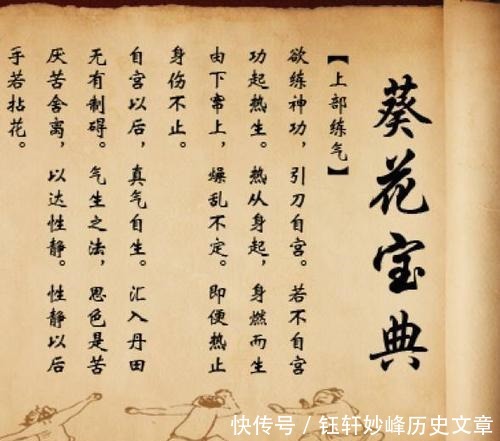 葵花宝典
【上部练气】
欲练神功，引刀自宫。若不自宫
功起热生。热从身起，身燃而生
由下窜上，燥乱不定。即便热止
身伤不止。
自宫以后，真气自生。汇入丹田
无有制碍。气生之法，思色是苦
厌苦舍离，以达性静。性静以后
手若拈花。
快传号 / 钰轩妙峰历史文章